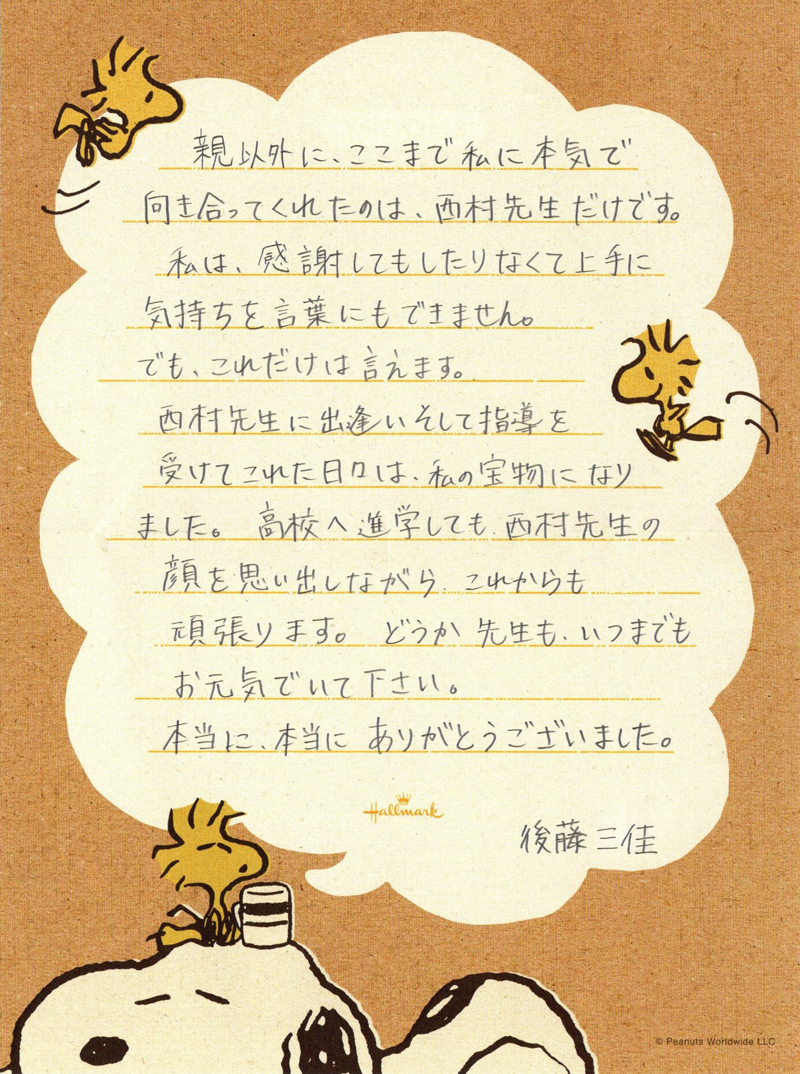 親以外に、ここまで私に本気で
向き合ってくれたのは、西村先生だけです。
私は、感謝してもしたりなくて上手に
気持ちを言葉にもできません。
でも、これだけは言えます。
西村先生に出逢いそして指導を
受けてこれた日々は、私の宝物になり
ました。高校へ進学しても、西村先生の
顔を思い出しながら、これからも
頑張ります。どうか先生も、いつまでも
お元気でいて下さい。
本当に、本当にありがとうございました。
Hallmark
後藤三佳
© Peanuts Worldwide LLC